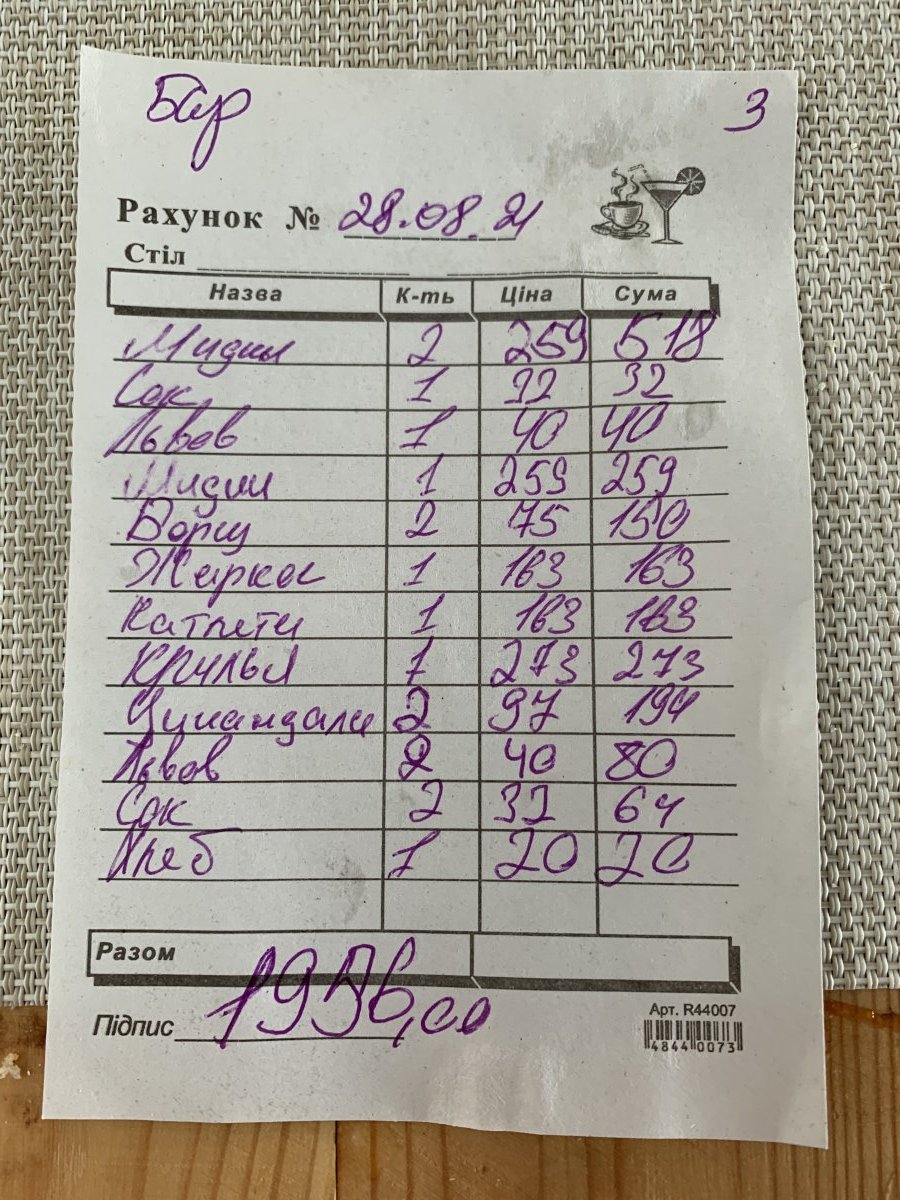 Бар 3
Рахунок № 28.08.21
Стіл
Назва К-ть Ціна Сума
Мидии 2 259 518
Сок 1 32 32
Львов 1 40 40
Мидии 1 259 259
Борщ 2 75 150
Жаркое 1 163 163
Катлети 1 163 163
Крылья 1 273 273
Цинандали 2 97 194
Львов 2 40 80
Сок 2 32 64
Хлеб 1 20 20
Разом
1956,00
Підпис
Арт. R44007
4844 0073